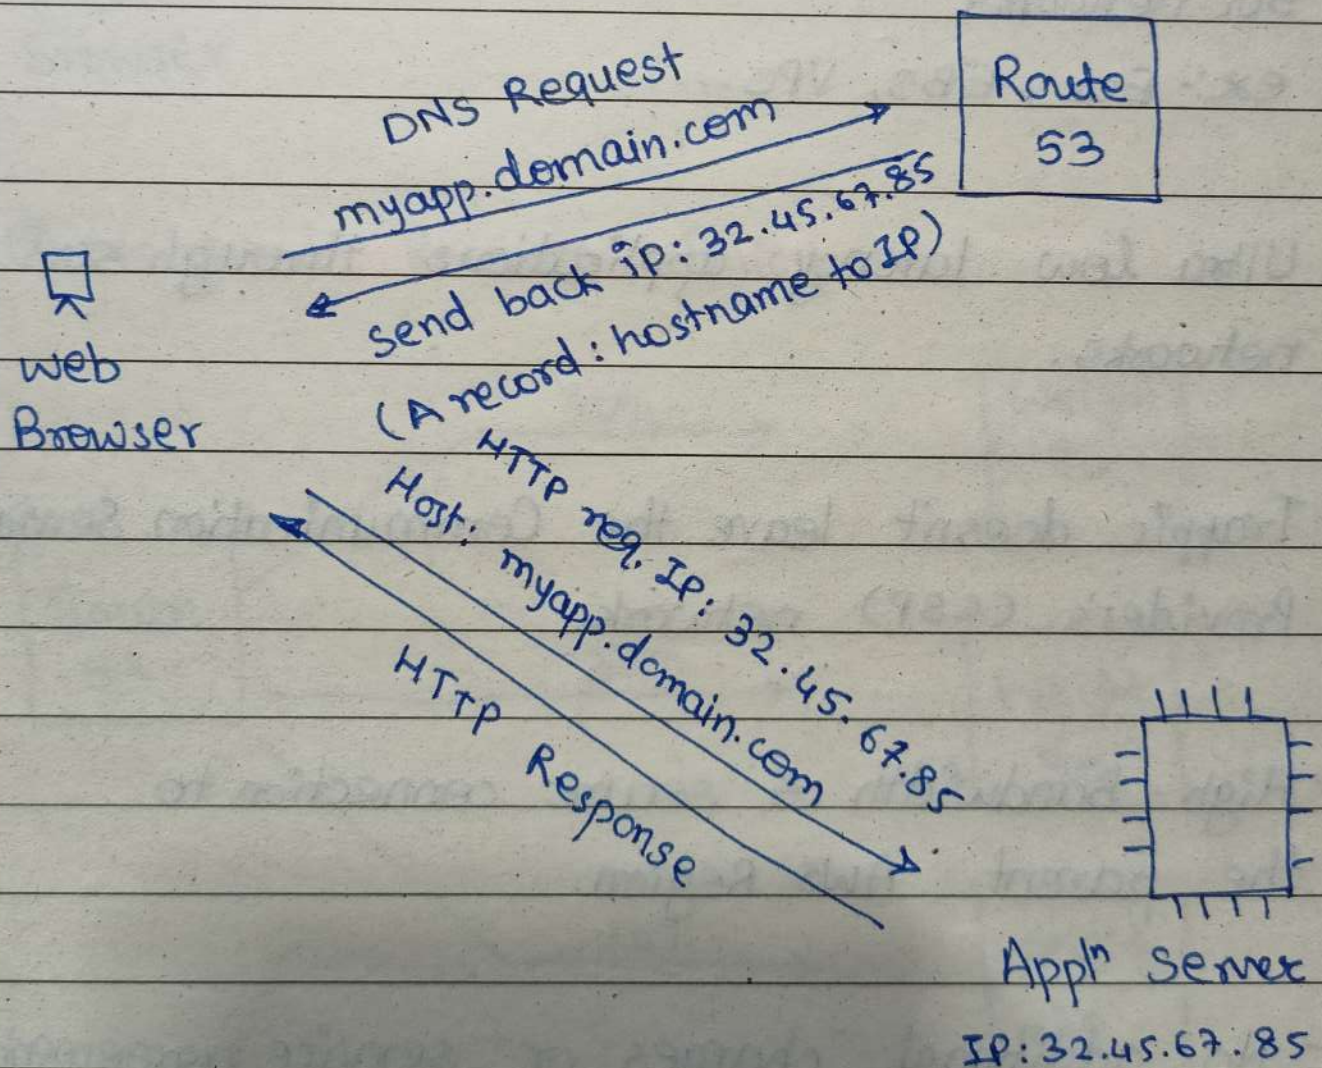 DNS Request
myapp.domain.com
Route
53
send back ip: 32.45.67.85
(A record: hostname to IP)
web
Browser
HTTP req. IP: 32.45.67.85
Host: myapp.domain.com
HTTP Response
Appln Server
IP: 32.45.67.85